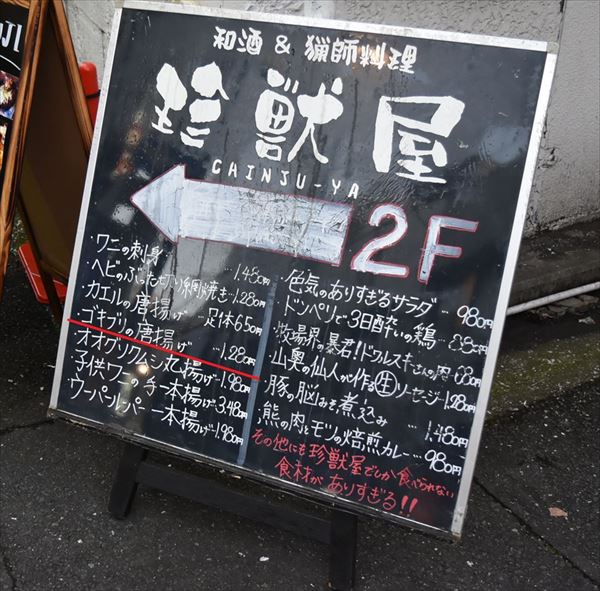 和酒 & 猟師料理
珍獣屋
CHINJU-YA
2F
・ワニの刺身 … 1.480円
・ヘビのぶった切り網焼き… 1.280円
・カエルの唐揚げ … 一足体650円
・ゴキブリの唐揚げ … 1.280円
・オオグソクムシ丸揚げ… 1.980円
・子供ワニの手一本揚げ… 3.480円
・ウーパールーパー一本揚げ… 1.980円
・色気のありすぎるサラダ … 980円
・ドンペリで3日酔いの鶏 … 880円
・牧場界の暴君!ドウルスキさんの肉 680円
・山奥の仙人が作る生ソーセージ 1.280円
・豚の脳みそ煮込み … 1.480円
・熊の肉とモツの焙煎カレー … 980円
その他にも珍獣屋でしか食べられない
食材がありすぎる!!